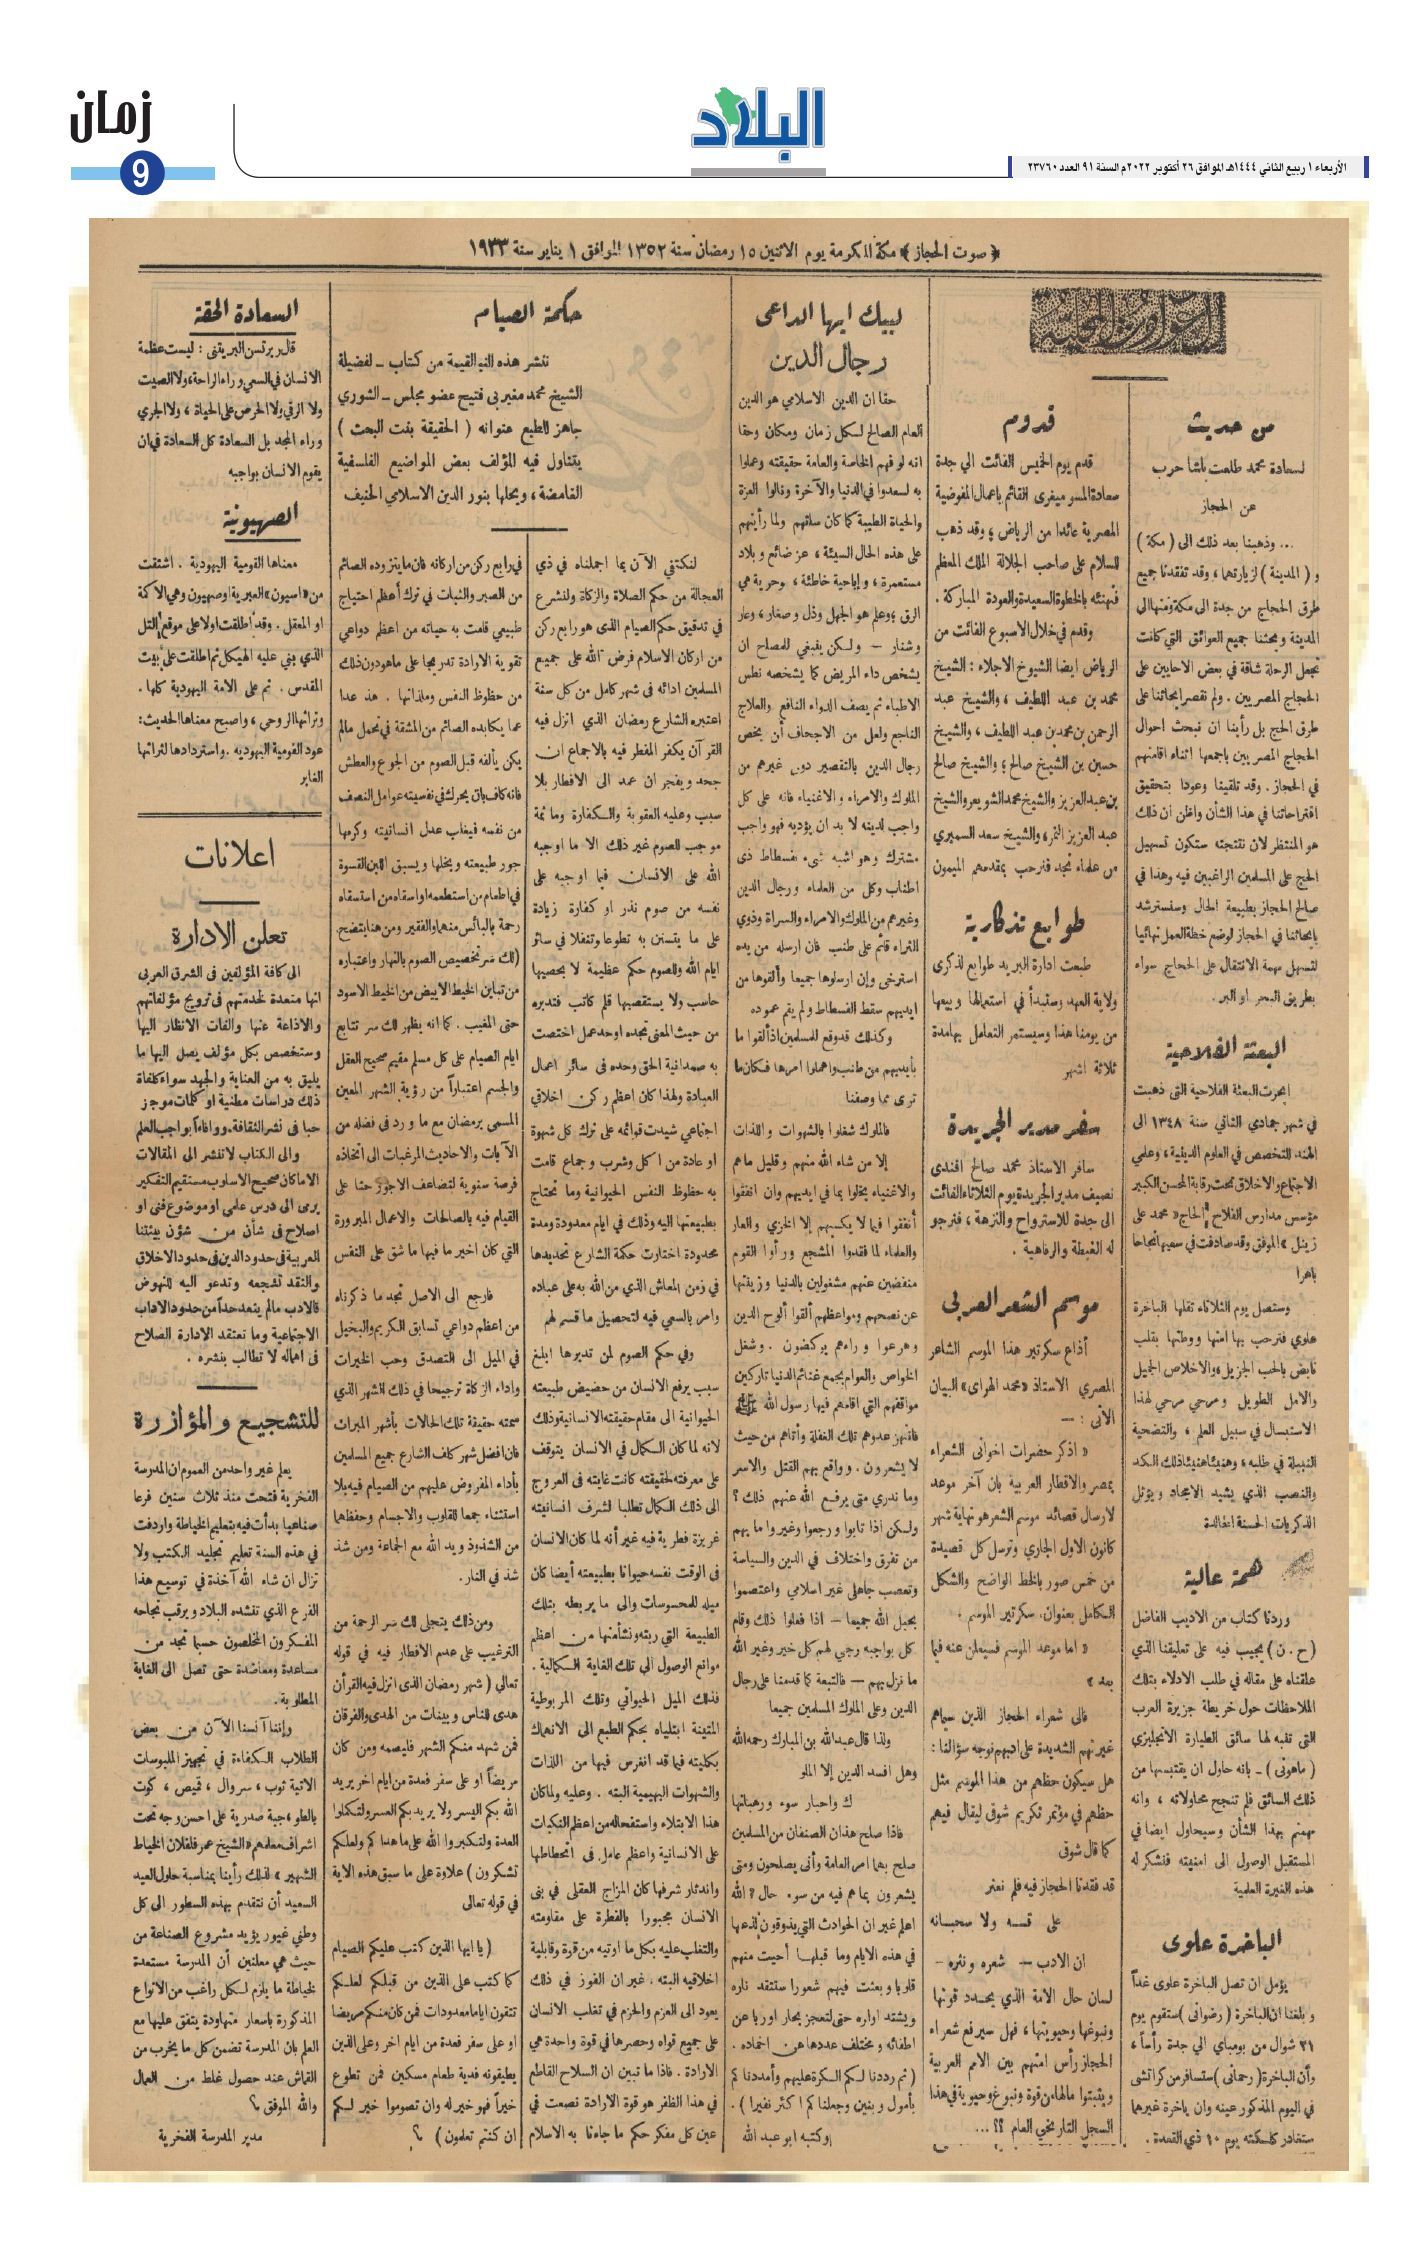 زمان
9
البلاد
الأربعاء ١ ربيع الثاني ١٤٤٤هـ الموافق ٢٦ أكتوبر ٢٠٢٢م السنة ٩١ العدد ٢٣٧٦٠
﴿ صوت الحجاز ﴾ مكة المكرمة يوم الاثنين ١٥ رمضان سنة ١٣٥٢ الموافق ١ يناير سنة ١٩٣٣
من حديث
لسعادة محمد طلعت باشا حرب
عن الحجاز
... وذهبنا بعد ذلك الى ( مكة )
و ( المدينة ) لزيارتهما ، وقد تفقدنا جميع
طرق الحجاج من جدة الى مكة ومنها الى
المدينة وبحثنا جميع العوائق التي كانت
تجعل الرحلة شاقة في بعض الاحايين على
الحجاج المصريين . ولم نقصر ابحاثنا على
طرق الحج بل رأينا ان نبحث احوال
الحجاج المصريين باجمعها اثناء اقامتهم
في الحجاز . وقد تلقينا وعودا بتحقيق
اقتراحاتنا في هذا الشأن واظن ان ذلك
هو المنتظر لان نتيجته ستكون تسهيل
الحج على المسلمين الراغبين فيه وهذا في
صالح الحجاز بطبيعة الحال وسنسترشد
بابحاثنا في الحجاز لوضع خطة العمل نهائيا
لتسهيل مهمة الانتقال على الحجاج سواء
بطريق البحر او البر .
البعثة الفلاحية
ابحرت البعثة الفلاحية التى ذهبت
في شهر جمادي الثاني سنة ١٣٤٨ الى
الهند للتخصص في العلوم الدينية ، وعلمي
الاجتماع والاخلاق تحت رقابة المحسن الكبير
مؤسس مدارس الفلاح « الحاج » محمد على
زينل » الموفق وقد صادفت في سعيها نجاحا
باهرا
وستصل يوم الثلاثاء تقلها الباخرة
علوي فنرحب بها امتها ووطنها بقلب
نابض بالحب الجزيل والاخلاص الجميل
والامل الطويل ومرحي مرحي لهذا
الاستبسال في سبيل العلم ، والتضحية
النبيلة في طلبه ، وهنيئا هنيئا ذلك الكد
والنصب الذي يشيد الامجاد ويؤثل
الذكريات الحسنة الخالدة
همة عالية
وردنا كتاب من الاديب الفاضل
( ح . ن ) يجيب فيه على تعليقنا الذي
علقناه على مقاله في طلب الادلاء بتلك
الملاحظات حول خريطة جزيرة العرب
التى تنبه لها سائق الطيارة الانجليزي
ذلك السائق فلم تنجح محاولاته ، وانه
مهتم بهذا الشأن وسيحاول ايضا في
المستقبل الوصول الى امنيته فنشكر له
هذه الغيرة العلمية
الباخرة علوى
يؤمل ان تصل الباخرة علوى غداً
و بلغنا ان الباخرة ( رضوانى ) ستقوم يوم
٢١ شوال من بومباي الى جدة رأساً ،
وأن الباخرة ( رحمانى ) ستسافر من كراتشى
في اليوم المذكور عينه وان باخرة غيرها
ستغادر كلكته يوم ١٠ ذي القعدة .
قدوم
قدم يوم الخميس الفائت الي جدة
القائم باعمال المفوضية
المصرية عائدا من الرياض ؛ وقد ذهب
للسلام على صاحب الجلالة الملك المعظم
فنهنئه بالخطوة السعيدة والعودة المباركة .
وقدم في خلال الاسبوع الفائت من
الرياض ايضا الشيوخ الاجلاء : الشيخ
محمد بن عبد اللطيف ، والشيخ عبد
الرحمن بن محمد بن عبد اللطيف ، والشيخ
حسين بن الشيخ صالح ؛ والشيخ صالح
بن عبد العزيز والشيخ محمد الشويعر والشيخ
والشيخ سعد السميري
من علماء نجد فنرحب بمقدمهم الميمون
طوابع تذكارية
طبعت ادارة البريد طوابع لذكرى
ولاية العهد وستبدأ في استعمالها وبيعها
من يومنا هذا وسيستمر التعامل بها مدة
ثلاثة اشهر
سفر مدير الجريدة
سافر الاستاذ محمد صالح افندى
نصيف مدير الجريدة يوم الثلاثاء الفائت
الى جدة للاسترواح والنزهة ، فنرجو
له الغبطة والرفاهية .
موسم الشعر العربى
أذاع سكرتير هذا الموسم الشاعر
المصري الاستاذ « محمد الهراوى » البيان
الآنى : —
« اذكر حضرات اخوانى الشعراء
بمصر والاقطار العربية بان آخر موعد
لارسال قصائد موسم الشعر هو نهاية شهر
كانون الاول الجاري وترسل كل قصيدة
من خمس صور بالخط الواضح والشكل
الكامل بعنوان سكرتير الموسم .
« اما موعد الموسم فسيعلن عنه فيما
بعد »
فالى شعراء الحجاز الذين سيماهم
غيرتهم الشديدة على ادبهم نوجه سؤالنا :
هل سيكون حظهم من هذا الموسم مثل
حظهم في مؤتمر تكريم شوقى ليقال فيهم
كما قال شوقى
قد فقدنا الحجاز فيه فلم نعثر
على قسه ولا سحبانه
ان الادب — شعره ونثره —
لسان حال الامة الذي يحدد قوتها
ونبوغها وحيويتها ، فهل سيرفع شعراء
الحجاز رأس امتهم بين الامم العربية
ويثبتوا مالها من قوة ونبوغ وحيوية في هذا
السجل التاريخي العام ؟؟ ...
لبيك ايها الداعى
رجال الدين
حقا ان الدين الاسلامي هو الدين
العام الصالح لكل زمان ومكان وحقا
انه لو فهم الخاصة والعامة حقيقته وعملوا
به لسعدوا في الدنيا والآخرة ونالوا العزة
والحياة الطيبة كما كان سلفهم ولما رأيتهم
على هذه الحال السيئة ، عز ضائع وبلاد
مستعمرة ، وإباحية خاطئة ، وحرية هي
الرق ؛ وعلم هو الجهل وذل وصغار ، وعار
وشنار — ولكن ينبغي للمصلح ان
يشخص داء المريض كما يشخصه نطس
الاطباء ثم يصف الدواء النافع والعلاج
الناجع ولعل من الاجحاف أن يخص
رجال الدين بالتقصير دون غيرهم من
الملوك والامراء والاغنياء فانه على كل
واجب لدينه لا بد ان يؤديه فهو واجب
مشترك وهو اشبه شيء بفسطاط ذى
اطناب وكل من العلماء ورجال الدين
وغيرهم من الملوك والامراء والسراة وذوي
الثراء قائم على طنب فان ارسله من يده
استرخى وإن ارسلوها جميعا وألقوها من
ايديهم سقط الفسطاط ولم يقم عموده
وكذلك قد وقع للمسلمين اذ ألقوا ما
بأيديهم من طنب واهملوا امرها فكان ما
ترى مما وصفنا
فالملوك شغلوا بالشهوات واللذات
إلا من شاء الله منهم وقليل ما هم
والاغنياء بخلوا بما في ايديهم وان انفقوا
أنفقوا فيما لا يكسبهم إلا الخزي والعار
والعلماء لما فقدوا المشجع ورأوا القوم
منفضين عنهم مشغولين بالدنيا وزينتها
عن نصحهم ومواعظهم ألقوا ألوح الدين
وهرعوا وراءهم يركضون . وشغل
الخواص والعوام بجمع غنائم الدنيا تاركين
مواقفهم التي اقامهم فيها رسول الله ﷺ
فانتهز عدوهم تلك الغفلة وأتاهم من حيث
لا يشعرون . وواقع بهم القتل والاسر
وما ندري متى يرفع الله عنهم ذلك ؟
ولكن اذا تابوا ورجعوا وغيروا ما بهم
من تفرق واختلاف في الدين والسياسة
وتعصب جاهلى غير اسلامي واعتصموا
بحبل الله جميعا — اذا فعلوا ذلك وقام
كل بواجبه رجي لهم كل خير وغير الله
ما نزل بهم — فالتبعة كما قدمنا على رجال
الدين وعلى الملوك المسلمين جميعا
ولذا قال عبد الله بن المبارك رحمه الله
وهل افسد الدين إلا الملو
ك واحبار سوء ورهبانها
فاذا صلح هذان الصنفان من المسلمين
صلح بهما امر العامة وأنى يصلحون ومتى
يشعرون بما هم فيه من سوء حال ؟ الله
اعلم غير ان الحوادث التي يذوقون لذعها
في هذه الايام وما قبلها أحيت منهم
قلوبا وبعثت فيهم شعورا ستتقد ناره
ويشتد اواره حتى لتعجز بحار اوربا عن
اطفائه ومختلف عددها عن اخماده .
( ثم رددنا لكم الكرة عليهم وأمددنا كم
بأموال وبنين وجعلناكم اكثر نفيرا ) .
وكتبه ابو عبد الله
حكمة الصيام
ننشر هذه النبذ القيمة من كتاب – لفضيلة
الشيخ محمد مغيربى فتيح عضو مجلس – الشورى
جاهز للطبع عنوانه ( الحقيقة بنت البحث )
يتناول فيه المؤلف بعض المواضيع الفلسفية
الغامضة ، ويحلها بنور الدين الاسلامي الحنيف
لنكتفي الآن بما اجملناه في ذي
العجالة من حكم الصلاة والزكاة ولنشرع
في تدقيق حكم الصيام الذى هو رابع ركن
من اركان الاسلام فرض الله على جميع
المسلمين ادائه في شهر كامل من كل سنة
اعتبره الشارع رمضان الذي انزل فيه
القرآن يكفر المفطر فيه بالاجماع ان
جحد ويفجر ان عمد الى الافطار بلا
سبب وعليه العقوبة والكفارة وما ثمة
موجب للصوم غير ذلك الا ما اوجبه
الله على الانسان فيما اوجبه على
نفسه من صوم نذر او كفارة زيادة
على ما يتسنن به تطوعا وتنفلا في سائر
ايام الله وللصوم حكم عظيمة لا يحصيها
حاسب ولا يستقصيها قلم كاتب فتدبره
من حيث المعنى تجده اوحد عمل اختصت
به صمدانية الحق وحده في سائر اعمال
العبادة ولهذا كان اعظم ركن اخلاقي
اجتماعي شيدت قوائمه على ترك كل شهوة
او عادة من اكل وشرب وجماع قامت
به حظوظ النفس الحيوانية وما تحتاج
بطبيعتها اليه وذلك في ايام معدودة ومدة
محدودة اختارت حكمة الشارع تحديدها
في زمن المعاش الذي من الله به على عباده
وامر بالسعي فيه لتحصيل ما قسم لهم
وفي حكم الصوم لمن تدبرها ابلغ
سبب يرفع الانسان من حضيض طبيعته
الحيوانية الى مقام حقيقته الانسانية وذلك
لانه لما كان الكمال في الانسان يتوقف
على معرفته لحقيقته كانت غايته في العروج
الى ذلك الكمال تطلبا لشرف انسانيته
غريزة فطرية فيه غير أنه لما كان الانسان
فى الوقت نفسه حيوانا بطبيعته أيضا كان
ميله للمحسوسات والى ما يربطه بتلك
الطبيعة التي ربته ونشأ منها من اعظم
موانع الوصول الى تلك الغاية الكمالية .
فذلك الميل الحيواني وتلك المربوطية
المتينة ابتلياه بحكم الطبع الى الانهماك
بكليته فيما قد انغرس فيها من اللذات
والشهوات البهيمية البته . وعليه ولما كان
هذا الابتلاء واستفحاله من اعظم النكبات
على الانسانية واعظم عامل في أنحطاطها
واندثار شرفها كان المزاج العقلى في بنى
الانسان مجبورا بالفطرة على مقاومته
والتغلب عليه بكل ما اوتيه من قوة وقابلية
اخلاقيه البته . غير ان الفوز في ذلك
يعود الى العزم والحزم في تغلب الانسان
على جميع قواه وحصرها في قوة واحدة هي
الارادة . فاذا ما تبين ان السلاح القاطع
في هذا الظفر هو قوة الارادة نصعت في
عين كل مفكر حكم ما جاءنا به الاسلام
في رابع ركن من اركانه فان ما يتزوده الصائم
من الصبر والثبات في ترك أعظم احتياج
طبيعي قامت به حياته من اعظم دواعي
تقوية الارادة تدريجا على ما هو دون ذلك
من حظوظ النفس وملذاتها . هذ عدا
عما يكابده الصائم من المشقة في تحمل مالم
يكن يألفه قبل الصوم من الجوع والعطش
فانه كاف بان يحرك في نفسيته عوامل النصف
من نفسه فيغلب عدل انسانيته وكرمها
جور طبيعته وبخلها ويسبق اللين القسوة
في اطعام من استطعمه او اسقاه من استسقاه
رحمة بالبائس منهما والفقير ومن هنا يتضح
لك سر تخصيص الصوم بالنهار واعتباره
من تباين الخيط الابيض من الخيط الاسود
حتى المغيب . كما انه يظهر لك سر تتابع
ايام الصيام على كل مسلم مقيم صحيح العقل
والجسم اعتباراً من رؤية الشهر المعين
المسمى برمضان مع ما ورد في فضله من
الآيات والاحاديث المرغبات الى اتخاذه
فرصة سنوية لتضاعف الاجور حثا على
القيام فيه بالصالحات والاعمال المبرورة
التي كان اخير ما فيها ما شق على النفس
فارجع الى الاصل تجد ما ذكرناه
من اعظم دواعي تسابق الكريم والبخيل
في الميل الى التصدق وحب الخيرات
واداء الزكاة ترجيحا في ذلك الشهر الذي
سمته حقيقة تلك الحالات بأشهر المبرات
فان افضل شهر كلف الشارع جميع المسلمين
بأداء المفروض عليهم من الصيام فيه بلا
استثناء جمعا للقلوب والاجسام وحفظهما
من الشذوذ ويد الله مع الجماعة ومن شذ
شذ في النار .
ومن ذلك يتجلى لك سر الرحمة من
الترغيب على عدم الافطار فيه في قوله
تعالي ( شهر رمضان الذى انزل فيه القرأن
هدى للناس وبينات من الهدى والفرقان
فمن شهد منكم الشهر فليصمه ومن كان
مريضاً او على سفر فعدة من ايام اخر يريد
الله بكم اليسر ولا يريد بكم العسر ولتكملوا
العدة ولتكبروا الله على ما هداكم ولعلكم
تشكرون ) علاوة على ما سبق هذه الاية
في قوله تعالى
( يا ايها الذين كتب عليكم الصيام
كما كتب على الذين من قبلكم لعلكم
تتقون اياما معدودات فمن كان منكم مريضا
او على سفر فعدة من ايام اخر وعلى الذين
يطيقونه فدية طعام مسكين فمن تطوع
خيراً فهو خير له وان تصوموا خير لكم
ان كنتم تعلمون ) ؟
السعادة الحقة
قال ربرتسن البريتنى : ليست عظمة
الانسان في السعي وراء الراحة ، ولا الصيت
ولا الرقي ولا الحرص على الحياة ، ولا الجري
وراء المجد بل السعادة كل السعادة في ان
يقوم الانسان بواجبه
الصهيونية
معناها القومية اليهودية . اشتقت
من « اسيون » العبرية اوصهيون وهي الأكة
او المعقل . وقد أطلقت اولا على موقع التل
الذي بني عليه الهيكل ثم اطلقت على بيت
المقدس . ثم على الامة اليهودية كلها .
وتراثها الروحي ، واصبح معناها الحديث :
عود القومية اليهودية . واستردادها لتراثها
الغابر
اعلانات
تعلن الادارة
الى كافة المؤلفين فى الشرق العربى
انها مستعدة لخدمتهم فى ترويج مؤلفاتهم
والاذاعة عنها والفات الانظار اليها
وستخصص بكل مؤلف يصل اليها ما
يليق به من العناية والجهد سواء كلفاه
ذلك دراسات مطنبة او كلمات موجز
حبا فى نشر الثقافة . ووافاءاً بواجب العلم
والى الكتاب لا تنشر الى المقالات
الا ما كان صحيح الاسلوب مستقيم التفكير
يرمى الى درس علمي او موضوع فنى او
اصلاح فى شأن من شؤن بيئتنا
العربية فى حدود الدين فى حدود الاخلاق
والنقد تشجعه وتدعو اليه للنهوض
فالادب مالم يتعد حداً من حدود الاداب
الاجتماعية وما نعتقد الادارة الصلاح
فى اهماله لا تطالب بنشره .
للتشجيع والمؤازرة
يعلم غير واحد من العموم ان المدرسة
الفخرية فتحت منذ ثلاث سنين فرعا
صناعيا بدأت فيه بتعليم الخياطة واردفت
في هذه السنة تعليم تجليد الكتب ولا
تزال ان شاء الله آخذة في توسيع هذا
الفرع الذي تنشده البلاد ويرقب نجاحه
المفكرون المخلصون حسبما تجد من
مساعدة ومعاضدة حتى تصل الى الغاية
المطلوبة .
وإننا آنسنا الآن من بعض
الطلاب الكفاءة في تجهيز الملبوسات
الاتية ثوب ، سروال ، قميص ، كوت
بالطو ، جبة صدرية على احسن وجه تحت
اشراف معلمهم « الشيخ عمر قلقلان الخياط
الشهير » لذلك رأينا بمناسبة حلول العيد
السعيد أن نتقدم بهذه السطور الى كل
وطني غيور يؤيد مشروع الصناعة من
حيث هي معلنين أن المدرسة مستعدة
لخياطة ما يلزم لكل راغب من الأنواع
المذكورة باسعار متهاودة يتفق عليها مع
العلم بان المدرسة تضمن كل ما يخرب من
القماش عند حصول غلط من العمال
والله الموفق ؟
مدير المدرسة الفخرية